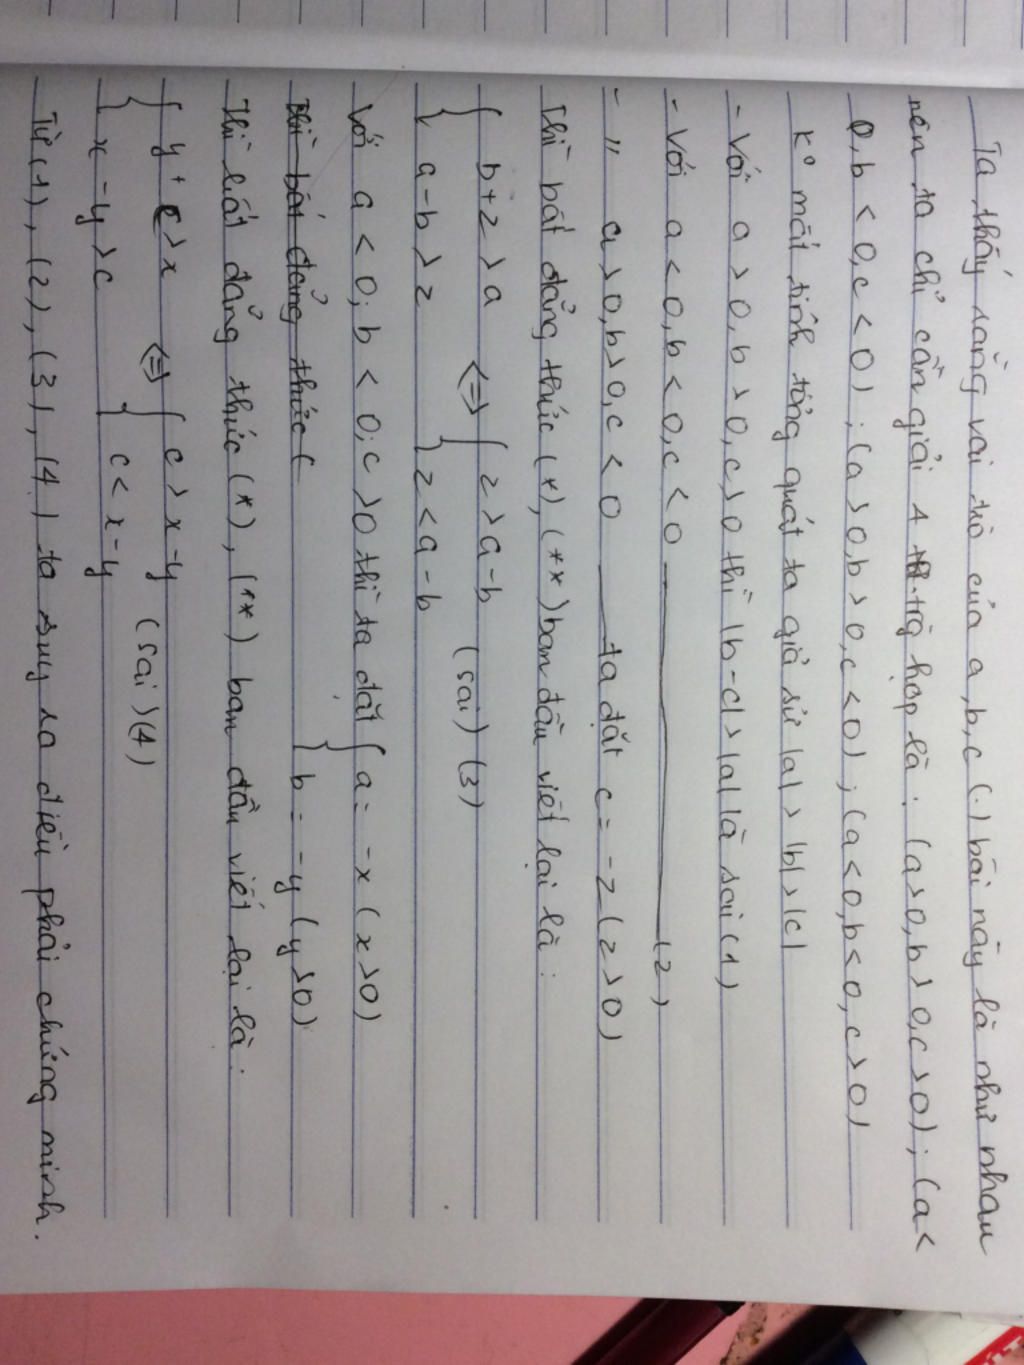 Ta thấy rằng vai trò của a, b, c (.) bài này là như nhau
nên ta chỉ cần giải 4 trg hợp là : (a>0, b>0, c>0) ; (a<
0, b<0, c<0) ; (a>0, b>0, c<0) ; (a<0, b<0, c>0)
K° mất tính tổng quát ta giả sử |a|>|b|>|c|
- Với a>0, b>0, c>0 thì |b-c|>|a| là sai (1)
- Với a<0, b<0, c<0 ——— (2)
- " a>0, b>0, c<0 —— ta đặt c = -z (z>0)
Thì bất đẳng thức (*), (**) ban đầu viết lại là :
{ b+z>a <=> { z>a-b (sai) (3)
{ a-b>z { z<a-b
Với a<0; b<0; c>0 thì ta đặt { a = -x (x>0)
Thì bất đẳng thức ( { b = -y (y>0)
Thì bất đẳng thức (*), (**) ban đầu viết lại là :
{ y+c>x <=> { c>x-y (sai) (4)
{ x-y>c { c<x-y
Từ (1), (2), (3), (4) ta suy ra điều phải chứng minh.